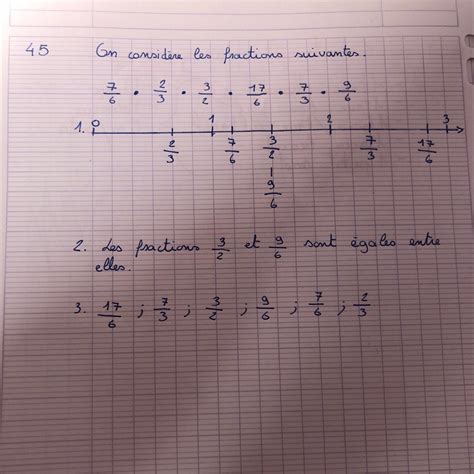 45 On considère les fractions suivantes.
7/6 • 2/3 • 3/2 • 17/6 • 7/3 • 9/6
1. 0 1 2 3
2/3 7/6 3/2 7/3 17/6
9/6
2. Les fractions 3/2 et 9/6 sont égales entre
elles.
3. 17/6 ; 7/3 ; 3/2 ; 9/6 ; 7/6 ; 2/3